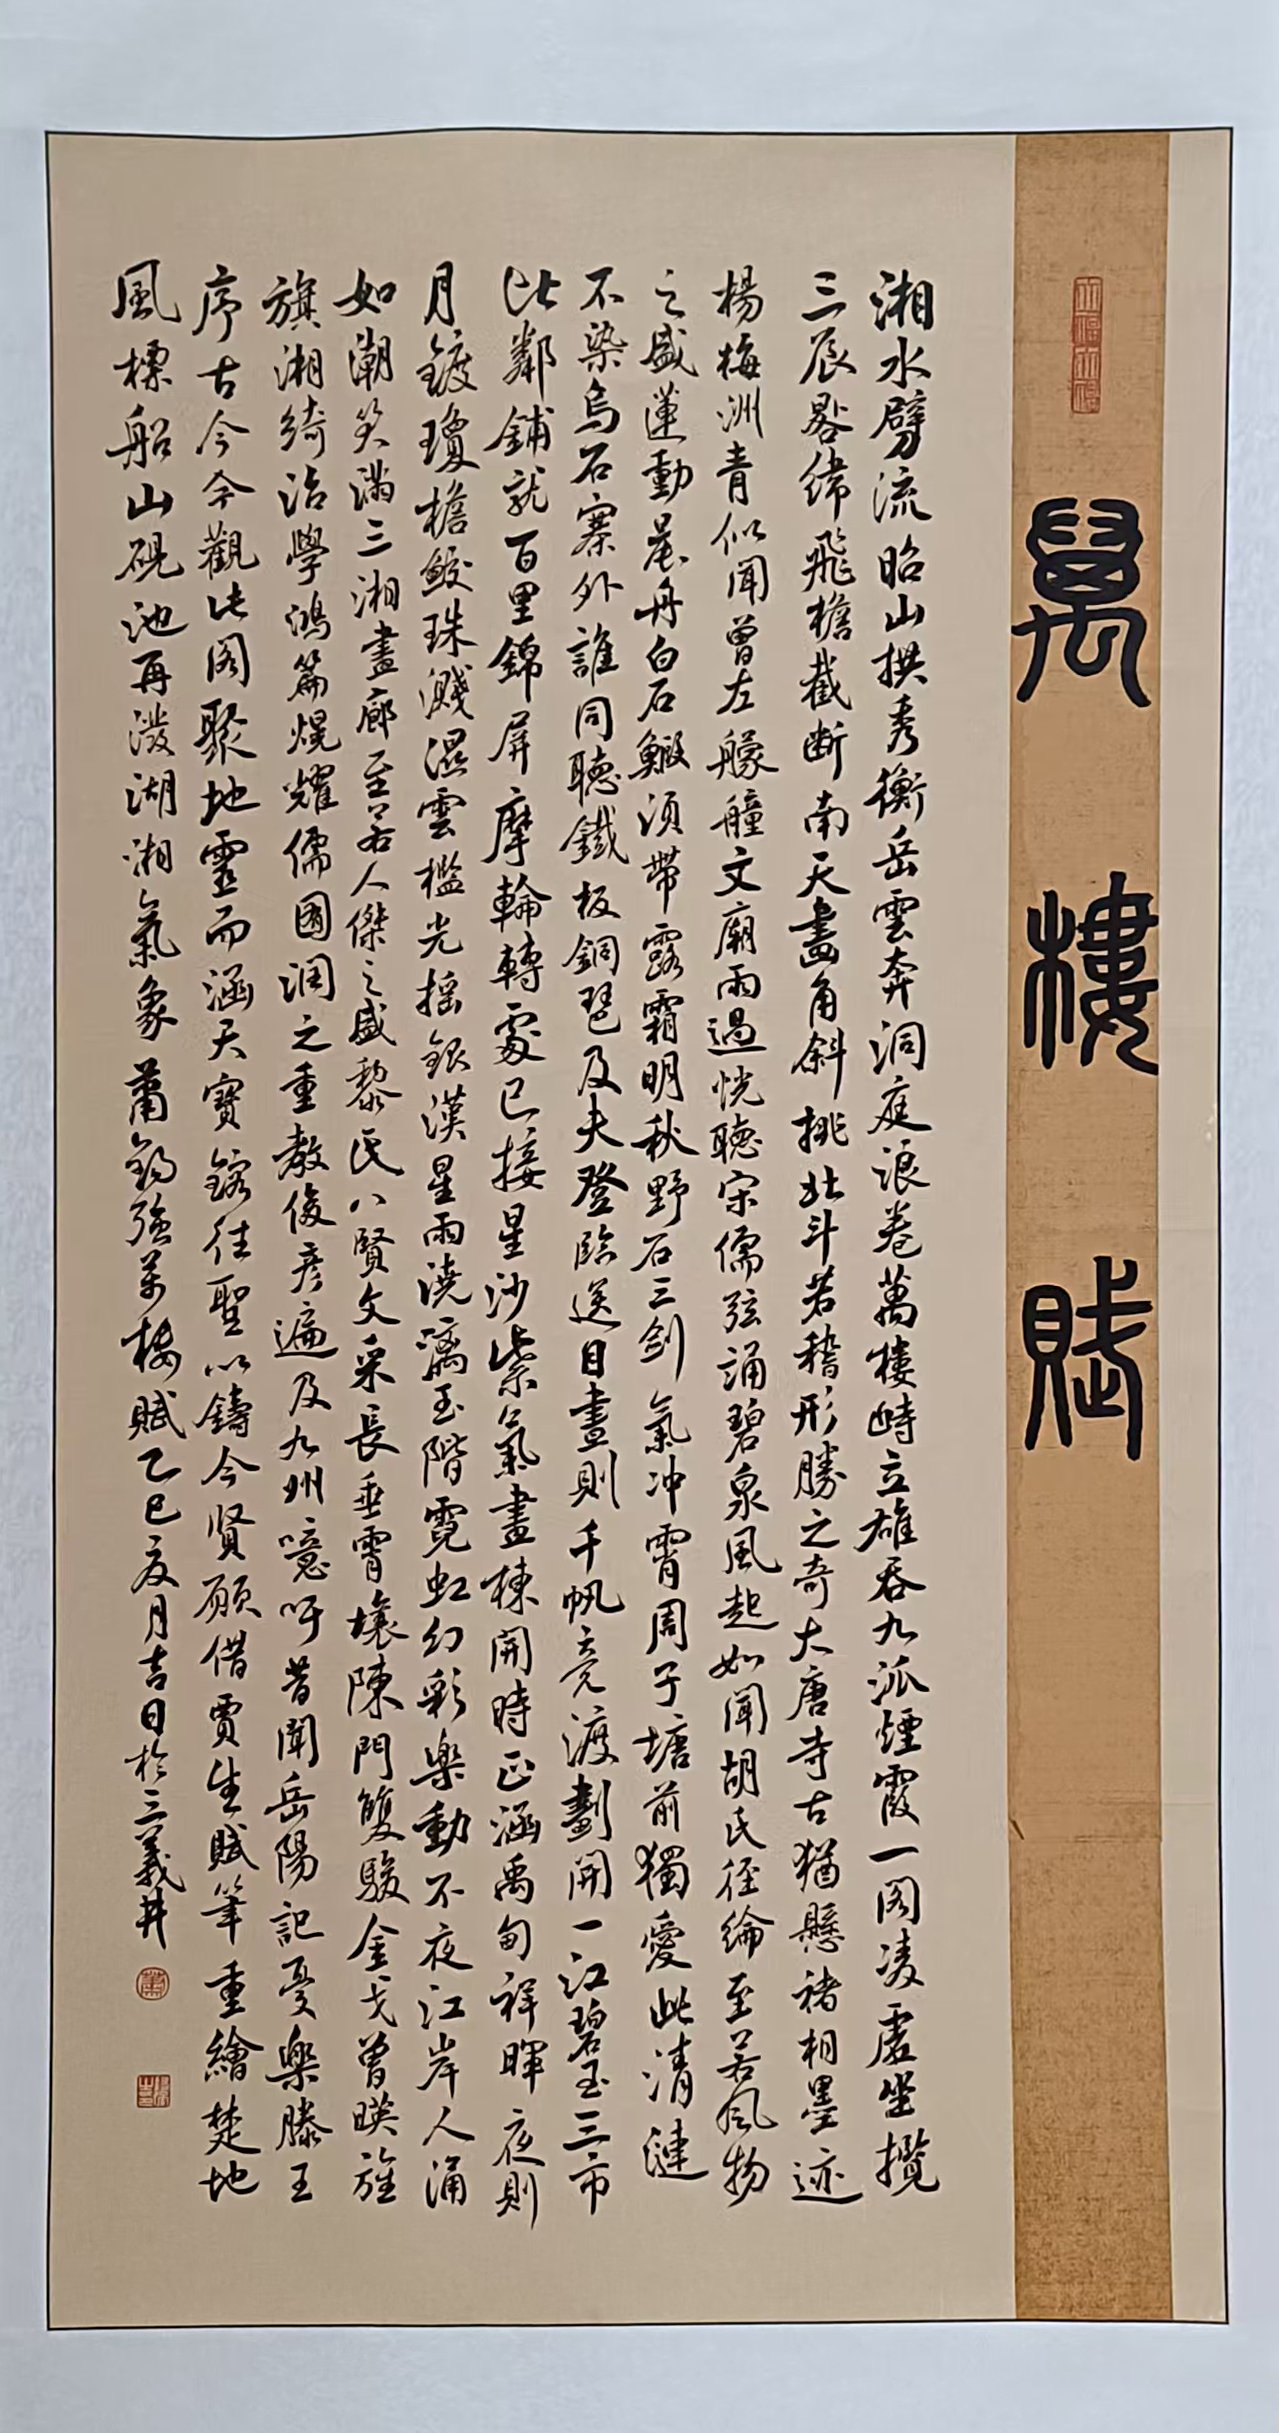 萬樓賦
湘水劈流昭山拱秀衡岳雲奔洞庭浪卷萬樓峙立雄吞九派煙霞一閣凌虛坐攬
三辰晷緯飛檐截斷南天畫角斜挑北斗若稽形勝之奇大唐寺古猶懸褚相墨迹
楊梅洲青似聞曾左艨艟文廟雨過恍聽宋儒弦誦碧泉風起如聞胡氏径綸至若風物
之盛蓮動晃舟白石鰕須帶露霜明秋野石三劍氣冲霄周子塘前獨愛此清漣
不染烏石寨外誰同聽鐵板銅琶及夫登臨送目晝則千帆竞渡劃開一江碧玉三市
比鄰鋪就百里錦屏摩輪轉處已接星沙紫氣畫棟開時正涵禹甸祥暉夜則
月鍍瓊檐鮫珠濺濕雲檻光摇銀漢星雨澆漓玉階霓虹幻彩樂動不夜江岸人涌
如潮笑滿三湘畫廊至若人傑之盛黎氏八賢文采長垂霄壤陳門雙駿金戈曾暎旌
旗湘綺治學鴻篇熀耀儒國润之重教俊彦遍及九州噫吁昔聞岳陽記憂樂滕王
序古今今觀此阁聚地靈而涵天寶鎔往聖以鑄今賢願借賈生賦筆重繪楚地
風標船山硯池再潑湖湘氣象 蕭鈞強萬樓賦乙巳夜月吉日於三義井